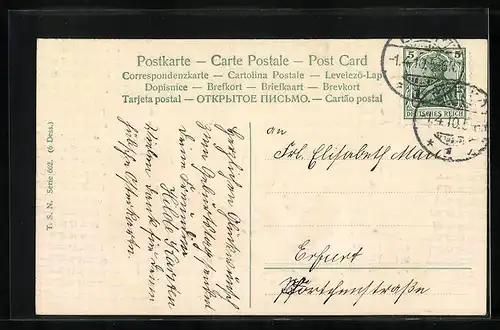 Postkarte – Carte Postale – Post Card
Correspondenzkarte – Cartolina Postale – Levelező-Lap
Dopisnice – Brefkort – Briefkaart – Brevkort
Tarjeta postal – ОТКРЫТОЕ ПИСЬМО. – Cartão postal
5 5
DEUTSCHES REICH
-1.4.10.
1.4.10.
T. S. N. Serie 662. (6 Dess.)
Herzlichen Glückwunsch
zum Geburtstag sendet
Deine Freundin
Hilde
Vielen Dank für Deine
hübsche Osterkarte.
an
Frl. Elisabeth
Erfurt